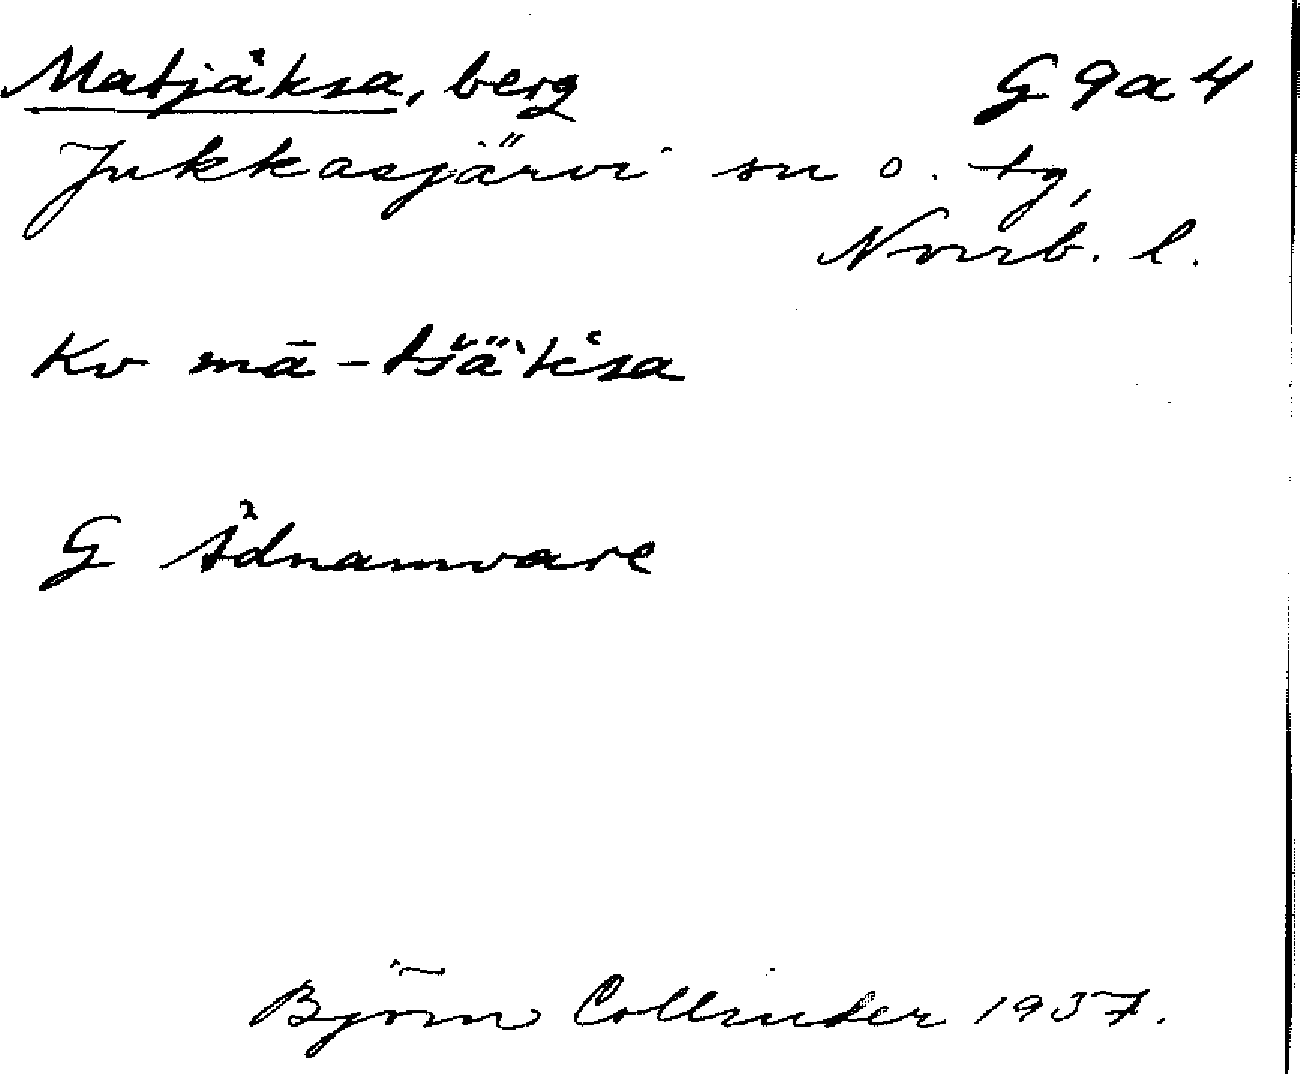 Matjåksa, berg G 9 a 4
Jukkasjärvi sn o. tg,
Norrb. l.
Kv mā-tšä`kʿsa
G Ädnamvare
Björn Collinder 1957.